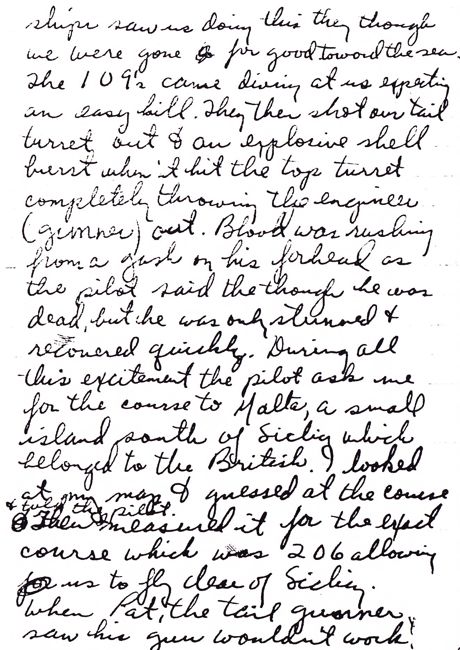 ships saw us doing this they though
we were gone for good toward the sea.
The 109's came diving at us expecting
an easy kill. They then shot our tail
turret out & an explosive shell
burst when it hit the top turret
completely throwing the engineer
(gunner) out. Blood was rushing
from a gash on his forhead as
the pilot said the though he was
dead, but he was only stunned &
recovered quickly. During all
this excitement the pilot ask me
for the course to Malta, a small
island south of Sicliy which
belonged to the British. I looked
at my map & guessed at the course
& told the pilot.
I then measured it for the exact
course which was 206 allowing
for us to fly clear of Sicliy.
When Pat, the tail gunner,
saw his gun wouldn't work